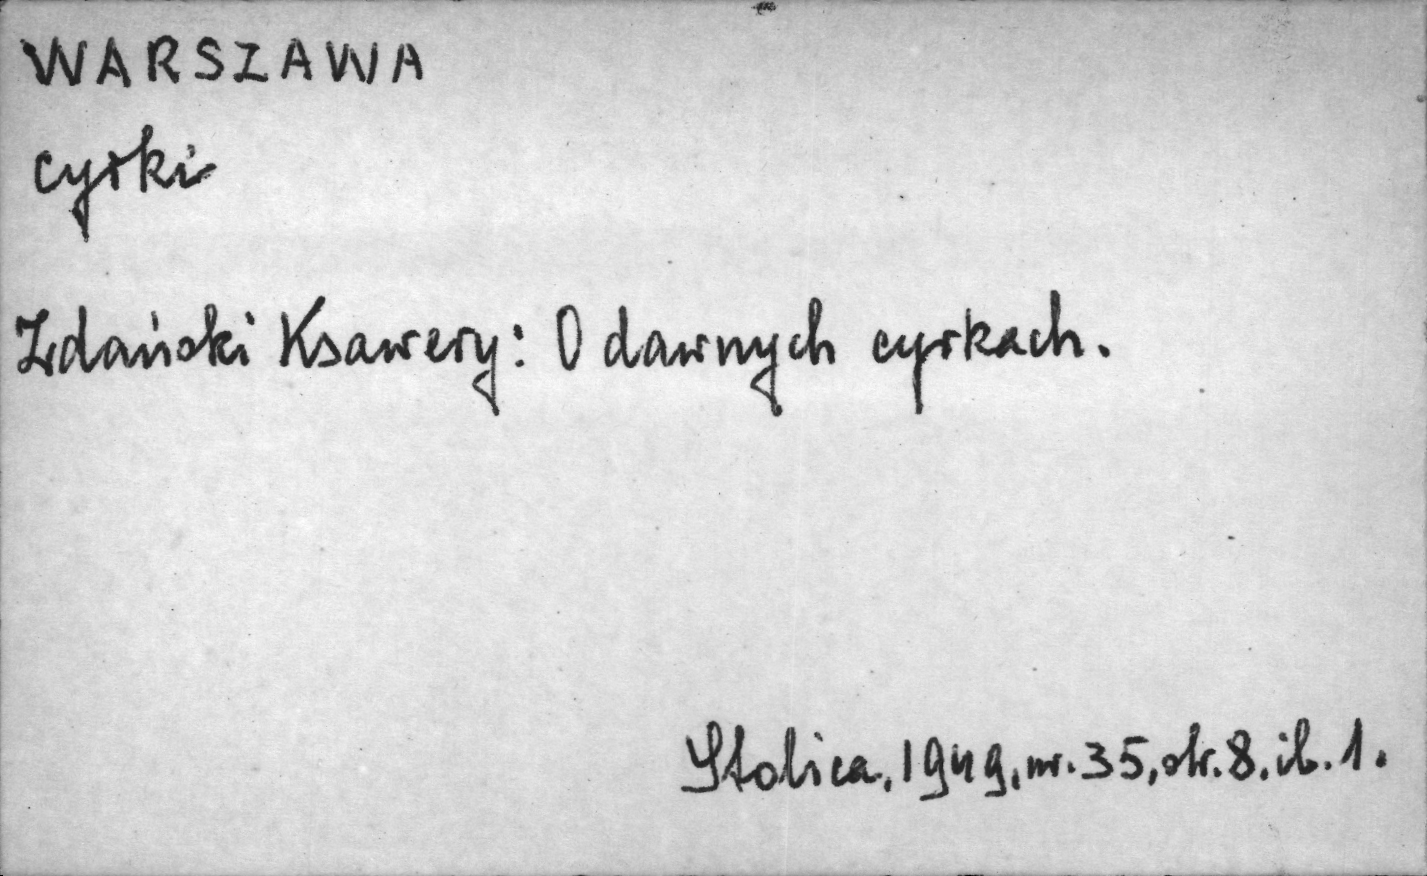 WARSZAWA
cyrki
Zdański Ksawery: O dawnych cyrkach.
Stolica, 1949, nr. 35, str. 8, il. 1.